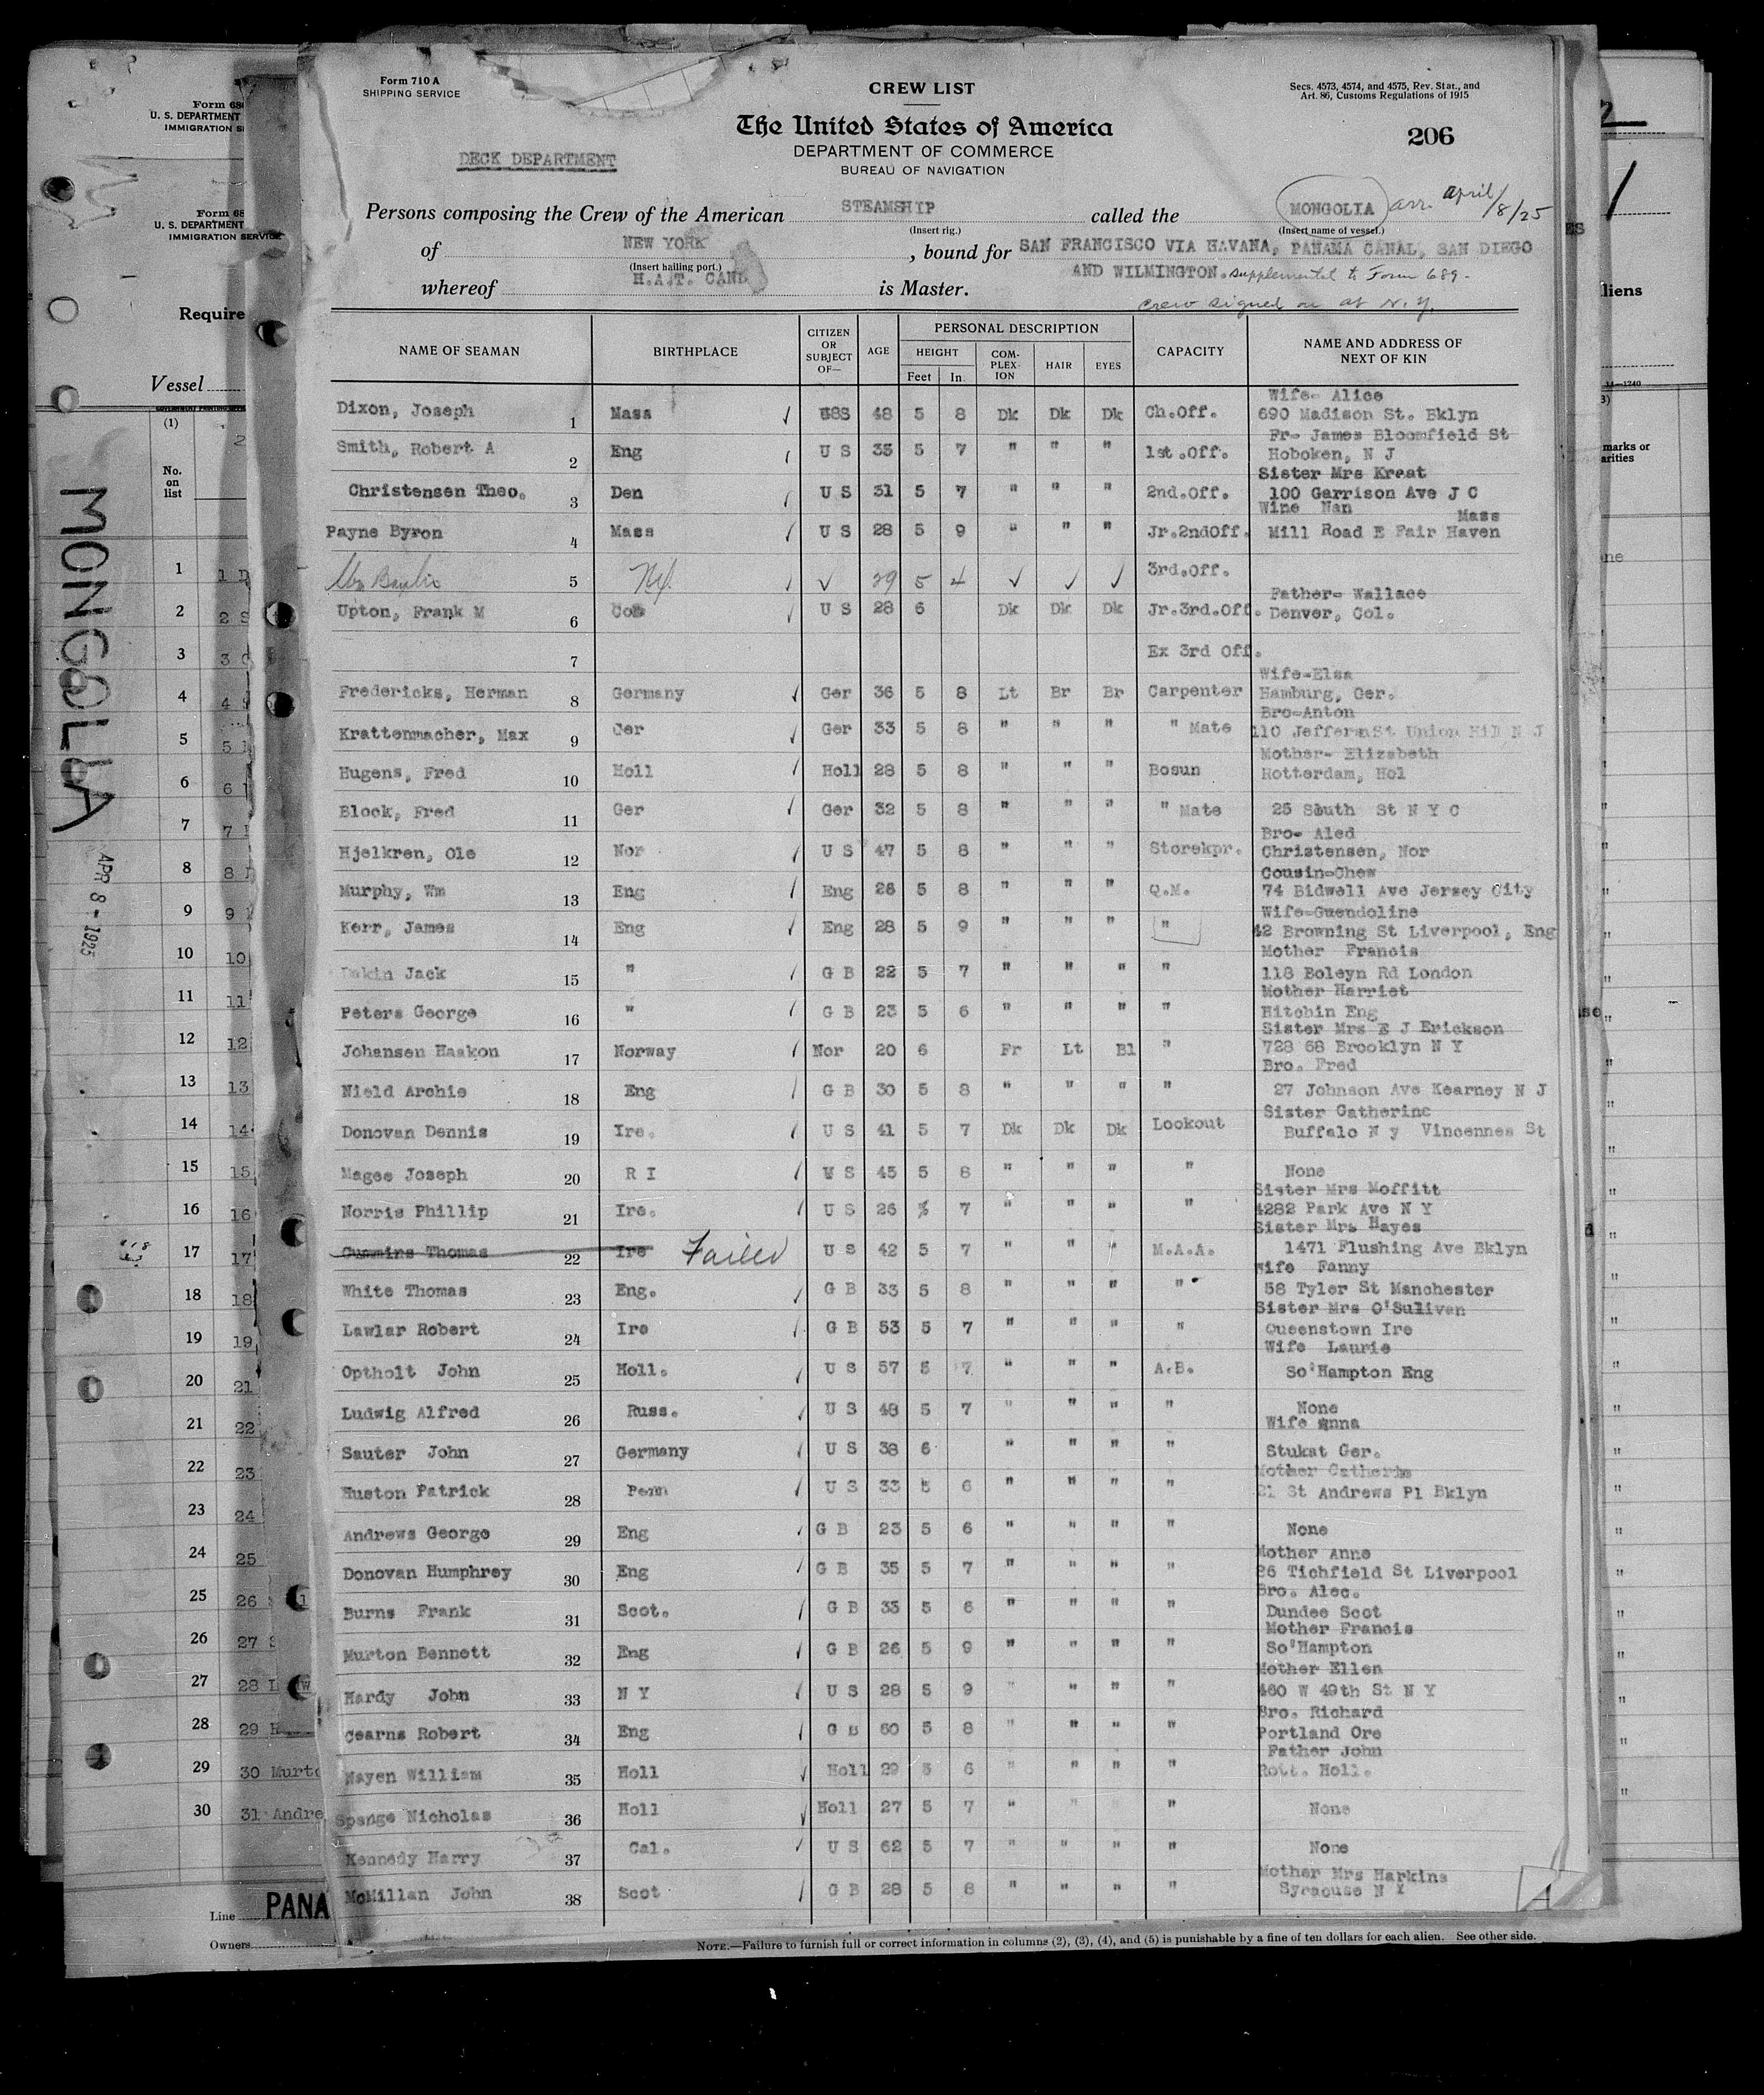 Form 710 A
SHIPPING SERVICE
CREW LIST
Secs. 4573, 4574, and 4575, Rev. Stat., and
Art. 86, Customs Regulations of 1915
The United States of America
206
DEPARTMENT OF COMMERCE
BUREAU OF NAVIGATION
DECK DEPARTMENT
Persons composing the Crew of the American STEAMSHIP called the MONGOLIA arr. April/8/25
(Insert rig.) (Insert name of vessel.)
of NEW YORK, bound for SAN FRANCISCO VIA HAVANA, PANAMA CANAL, SAN DIEGO
(Insert hailing port.) AND WILMINGTON. supplemental to Form 689-
whereof H.A.T. CAND is Master.
crew signed on at N.Y.
NAME OF SEAMAN BIRTHPLACE CITIZEN OR SUBJECT OF— AGE PERSONAL DESCRIPTION CAPACITY NAME AND ADDRESS OF NEXT OF KIN
HEIGHT COM-PLEX-ION HAIR EYES
Feet In.
Wife- Alice
Dixon, Joseph 1 Mass USS 48 5 8 Dk Dk Dk Ch.Off. 690 Madison St. Bklyn
Fr- James Bloomfield St
Smith, Robert A 2 Eng U S 35 5 7 " " " 1st.Off. Hoboken, N J
Sister Mrs Kreat
Christensen Theo. 3 Den U S 31 5 7 " " " 2nd.Off. 100 Garrison Ave J C
Wine Nan Mass
Payne Byron 4 Mass U S 28 5 9 " " " Jr.2ndOff. Mill Road E Fair Haven
5 29 5 4 3rd.Off.
Father- Wallace
Upton, Frank M 6 U S 28 6 Dk Dk Dk Jr.3rd.Off. Denver, Col.
7 Ex 3rd Off.
Wife-Elsa
Fredericks, Herman 8 Germany Ger 36 5 8 Lt Br Br Carpenter Hamburg, Ger.
Bro-Anton
Krattenmacher, Max 9 Ger Ger 33 5 8 " " " " Mate 110 JeffersnSt Union Hill N J
Mother- Elizabeth
Hugens, Fred 10 Holl Holl 28 5 8 " " " Bosun Rotterdam, Hol
Block, Fred 11 Ger Ger 32 5 8 " " " " Mate 25 South St N Y C
Bro- Aled
Hjelkren, Ole 12 Nor U S 47 5 8 " " " Storekpr. Christensen, Nor
Cousin-Chew
Murphy, Wm 13 Eng Eng 28 5 8 " " " Q.M. 74 Bidwell Ave Jersey City
Wife-Guendoline
Kerr, James 14 Eng Eng 28 5 9 " " " " 42 Browning St Liverpool, Eng
Mother Francis
Dakin Jack 15 " G B 22 5 7 " " " " 118 Boleyn Rd London
Mother Harriet
Peters George 16 " G B 23 5 6 " " " " Hitchin Eng
Sister Mrs E J Erickson
Johansen Haakon 17 Norway Nor 20 6 Fr Lt Bl " 728 68 Brooklyn N Y
Bro. Fred
Nield Archie 18 Eng G B 30 5 8 " " " " 27 Johnson Ave Kearney N J
Sister Catherine
Donovan Dennis 19 Ire. U S 41 5 7 Dk Dk Dk Lookout Buffalo N y Vincennes St
Magee Joseph 20 R I U S 45 5 8 " " " " None
Sister Mrs Moffitt
Norris Phillip 21 Ire. U S 26 5 7 " " " " 4282 Park Ave N Y
Sister Mrs Hayes
Cummins Thomas 22 Ire Failed U S 42 5 7 " " " M.A.A. 1471 Flushing Ave Bklyn
Wife Fanny
White Thomas 23 Eng. G B 33 5 8 " " " " 58 Tyler St Manchester
Sister Mrs O'Sulivan
Lawlar Robert 24 Ire G B 53 5 7 " " " " Queenstown Ire
Wife Laurie
Optholt John 25 Holl. U S 57 5 7 " " " A.B. So'Hampton Eng
Ludwig Alfred 26 Russ. U S 48 5 7 " " " " None
Wife Anna
Sauter John 27 Germany U S 38 6 " " " " Stukat Ger.
Mother Catherine
Huston Patrick 28 Penn U S 33 5 6 " " " " 21 St Andrews Pl Bklyn
Andrews George 29 Eng G B 23 5 6 " " " " None
Mother Anne
Donovan Humphrey 30 Eng G B 35 5 7 " " " " 26 Tichfield St Liverpool
Bro. Alec.
Burns Frank 31 Scot. G B 35 5 6 " " " " Dundee Scot
Mother Francis
Murton Bennett 32 Eng G B 26 5 9 " " " " So'Hampton
Mother Ellen
Hardy John 33 N Y U S 28 5 9 " " " " 460 W 49th St N Y
Bro. Richard
Cearns Robert 34 Eng G B 60 5 8 " " " " Portland Ore
Father John
Nayen William 35 Holl Holl 29 5 6 " " " " Rott. Holl.
Spenge Nicholas 36 Holl Holl 27 5 7 " " " " None
Kennedy Harry 37 Cal. U S 62 5 7 " " " " None
Mother Mrs Harkins
McMillan John 38 Scot G B 28 5 8 " " " " Syracuse N Y
NOTE.—Failure to furnish full or correct information in columns (2), (3), (4), and (5) is punishable by a fine of ten dollars for each alien. See other side.
Form 68
U. S. DEPARTMENT
IMMIGRATION S
Form 68
U. S. DEPARTMENT
IMMIGRATION SERVICE
Require
Vessel
(1)
No. on list
MONGOLIA
APR 8 - 1925
1 1
2 2 S
3 3 C
4 4
5 5
6 6
7 7
8 8
9 9
10 10
11 11
12 12
13 13
14 14
15 15
16 16
17 17
18 18
19 19
20 21
21 22
22 23
23 24
24 25
25 26
26 27 S
27 28 L
28 29 H
29 30 Murto
30 31 Andre
Line PANA
Owners
liens
14—1240
marks or
arities